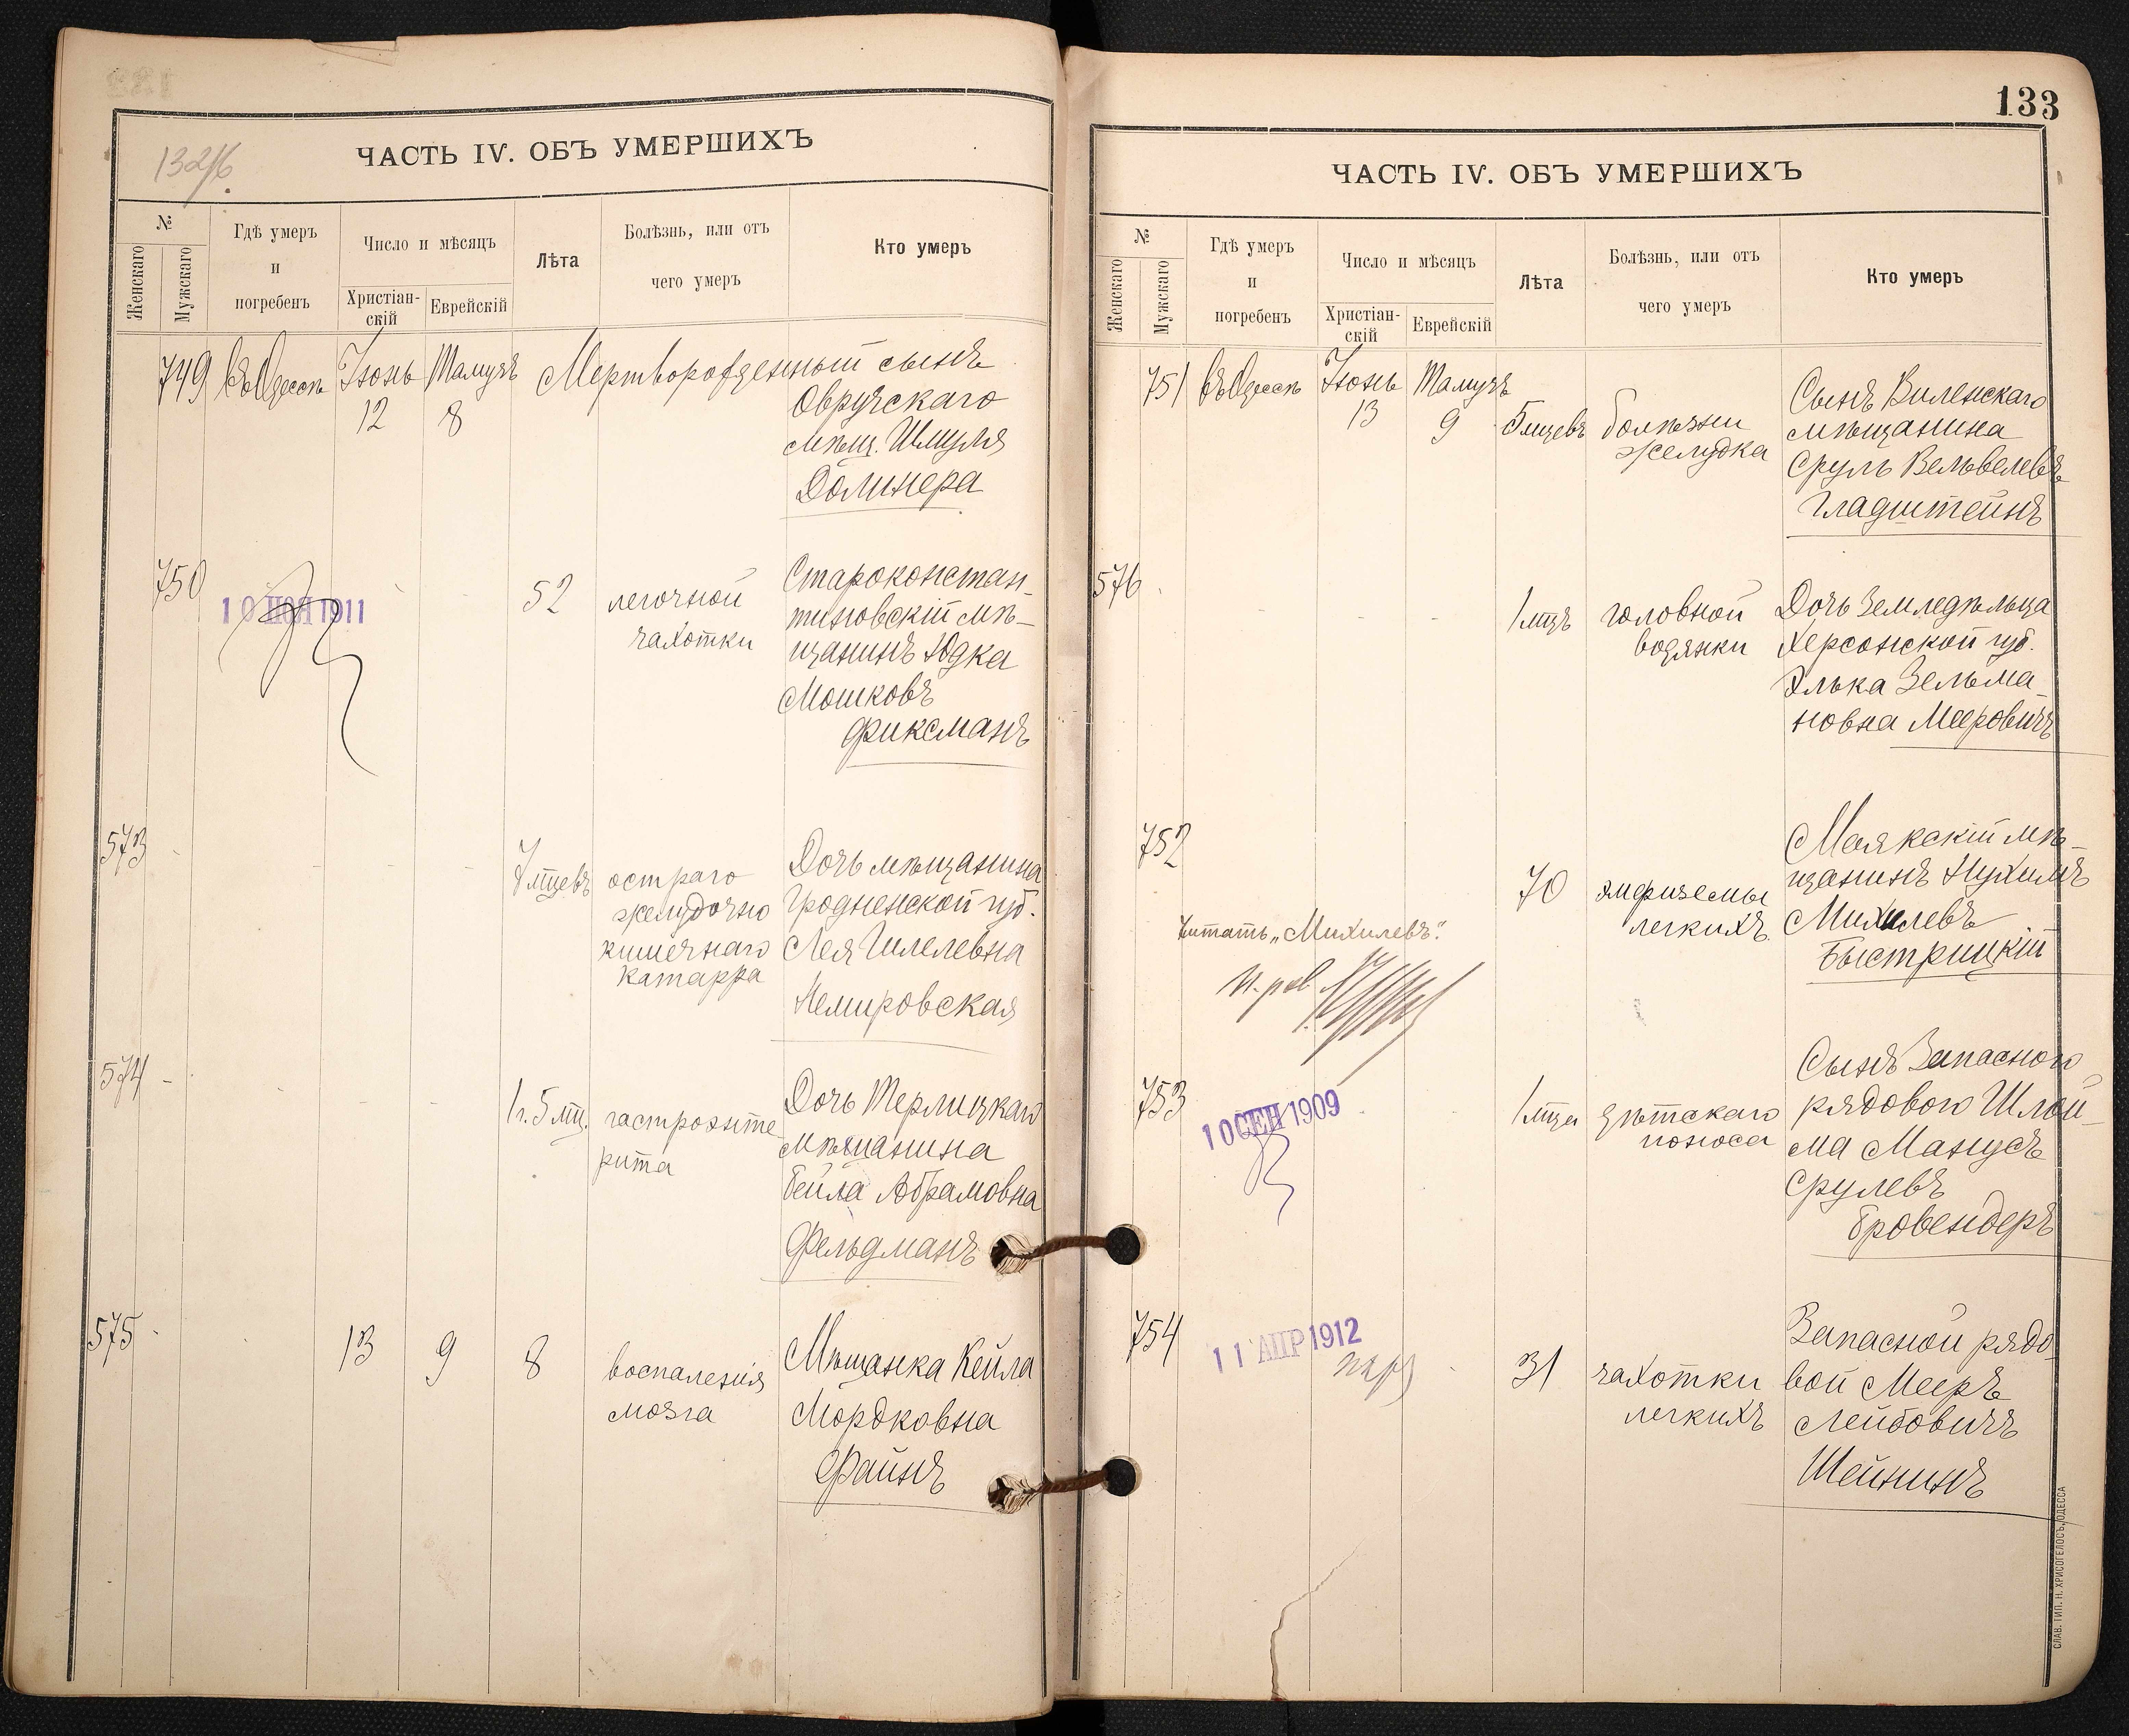 132/б
ЧАСТЬ IV. ОБЪ УМЕРШИХЪ
№
Женскаго
Мужскаго
Гдѣ умеръ
и
погребенъ
Число и мѣсяцъ
Христіан-
скій
Еврейскій
Лѣта
Болѣзнь, или отъ
чего умеръ
Кто умеръ
749 въ Одессѣ Іюнь Тамузъ Мертворожденный сынъ
12 8
Овручскаго
мѣщ. Шмуля
Долинера
750
10 НОЯ 1911
52
легочной
чахотки
Староконстан-
тиновскій мѣ-
щанинъ Юдка
Мошковъ
Фиксманъ
573
7 мцевъ
остраго
желудочно
кишечнаго
катарра
Дочь мѣщанина
Гродненской губ.
Лея Гилелевна
Немировская
574
1 г. 5 мц.
гастроэнте
рита
Дочь Терлицкаго
мѣщанина
Бейла Абрамовна
Фельдманъ
575
13 9 8
воспаленія
мозга
Мѣщанка Кейла
Мордковна
Файнъ
133
ЧАСТЬ IV. ОБЪ УМЕРШИХЪ
№
Женскаго
Мужскаго
Гдѣ умеръ
и
погребенъ
Число и мѣсяцъ
Христіан-
скій
Еврейскій
Лѣта
Болѣзнь, или отъ
чего умеръ
Кто умеръ
751 въ Одессѣ Іюнь Тамузъ
13 9 5 мцевъ
болѣзни
желудка
Сынъ Виленскаго
мѣщанина
Сруль Вельвелевъ
Гладштейнъ
576
1 мцъ
головной
водянки
Дочь земледѣльца
Херсонской губ.
Элька Зельма-
новна Мееровичъ
752
70
эмфиземы
легкихъ
Маякскій мѣ-
щанинъ Нухимъ
Михелевъ
Быстрицкій
Читать „Михилевъ".
753
10 СЕН 1909
1 мца
дѣтскаго
поноса
Сынъ Запасного
рядового Шлой-
ма Манусъ
Срулевъ
Бровендеръ
754
11 АПР 1912
31
чахотки
легкихъ
Запасной рядо-
вой Мееръ
Лейбовичъ
Шейнинъ
СЛАВ. ТИП. Н. ХРИСОГЕЛОСЪ, ОДЕССА